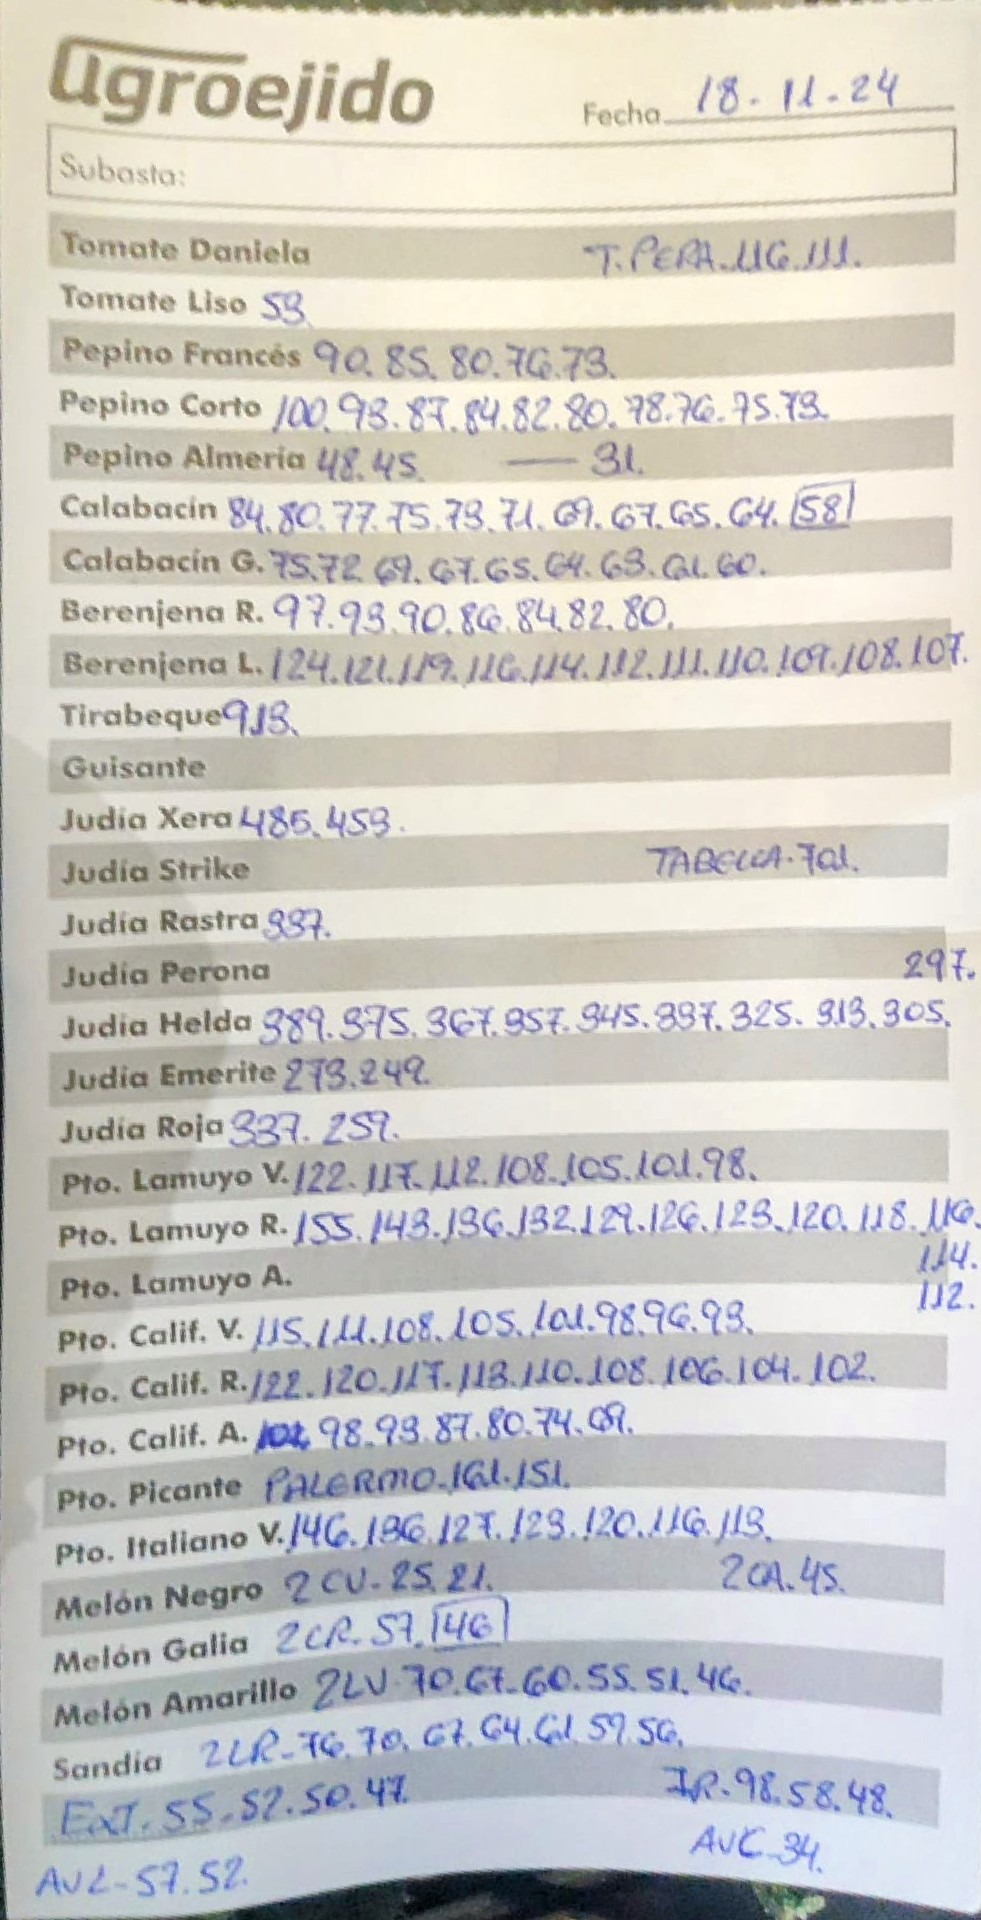 agroejido
Fecha 18-11-24
Subasta:
Tomate Daniela T. PERA.116.111.
Tomate Liso 53
Pepino Francés 90.85.80.76.73.
Pepino Corto 100.93.87.84.82.80.78.76.75.73.
Pepino Almería 48.45. — 31.
Calabacín 84.80.77.75.73.71.69.67.65.64.58
Calabacín G. 75.72.69.67.65.64.63.61.60.
Berenjena R. 97.93.90.86.84.82.80.
Berenjena L. 124.121.119.116.114.112.111.110.109.108.107.
Tirabeque 913.
Guisante
Judía Xera 485.453.
Judía Strike TABELLA-701.
Judía Rastra 337.
Judía Perona 297.
Judía Helda 389.375.367.357.345.337.325.313.305.
Judía Emerite 273.249.
Judía Roja 337.259.
Pto. Lamuyo V. 122.117.112.108.105.101.98.
Pto. Lamuyo R. 155.143.136.132.129.126.123.120.118.116.
114.
Pto. Lamuyo A. 112.
Pto. Calif. V. 115.111.108.105.101.98.96.93.
Pto. Calif. R. 122.120.117.113.110.108.106.104.102.
Pto. Calif. A. 102.98.93.87.80.74.69.
Pto. Picante PALERMO-161.151.
Pto. Italiano V. 146.136.127.123.120.116.113.
Melón Negro 2CU-25.21. 2CA.45.
Melón Galia 2CR-57.46
Melón Amarillo 2LV-70.67.60.55.51.46.
Sandía 2LR-76.70.67.64.61.59.56.
EXT-55.52.50.47. IR-98.58.48.
AVL-57.52. AVC-34.